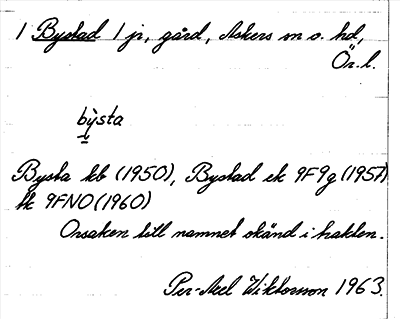 1 Bystad 1 jr, gård, Askers sn o. hd,
Ör. l.
bỳsta
Bysta kb (1950), Bystad ek 9F9g (1957)
tk 9FNO (1960)
Orsaken till namnet okänd i trakten.
Per-Axel Wiktorsson 1963.